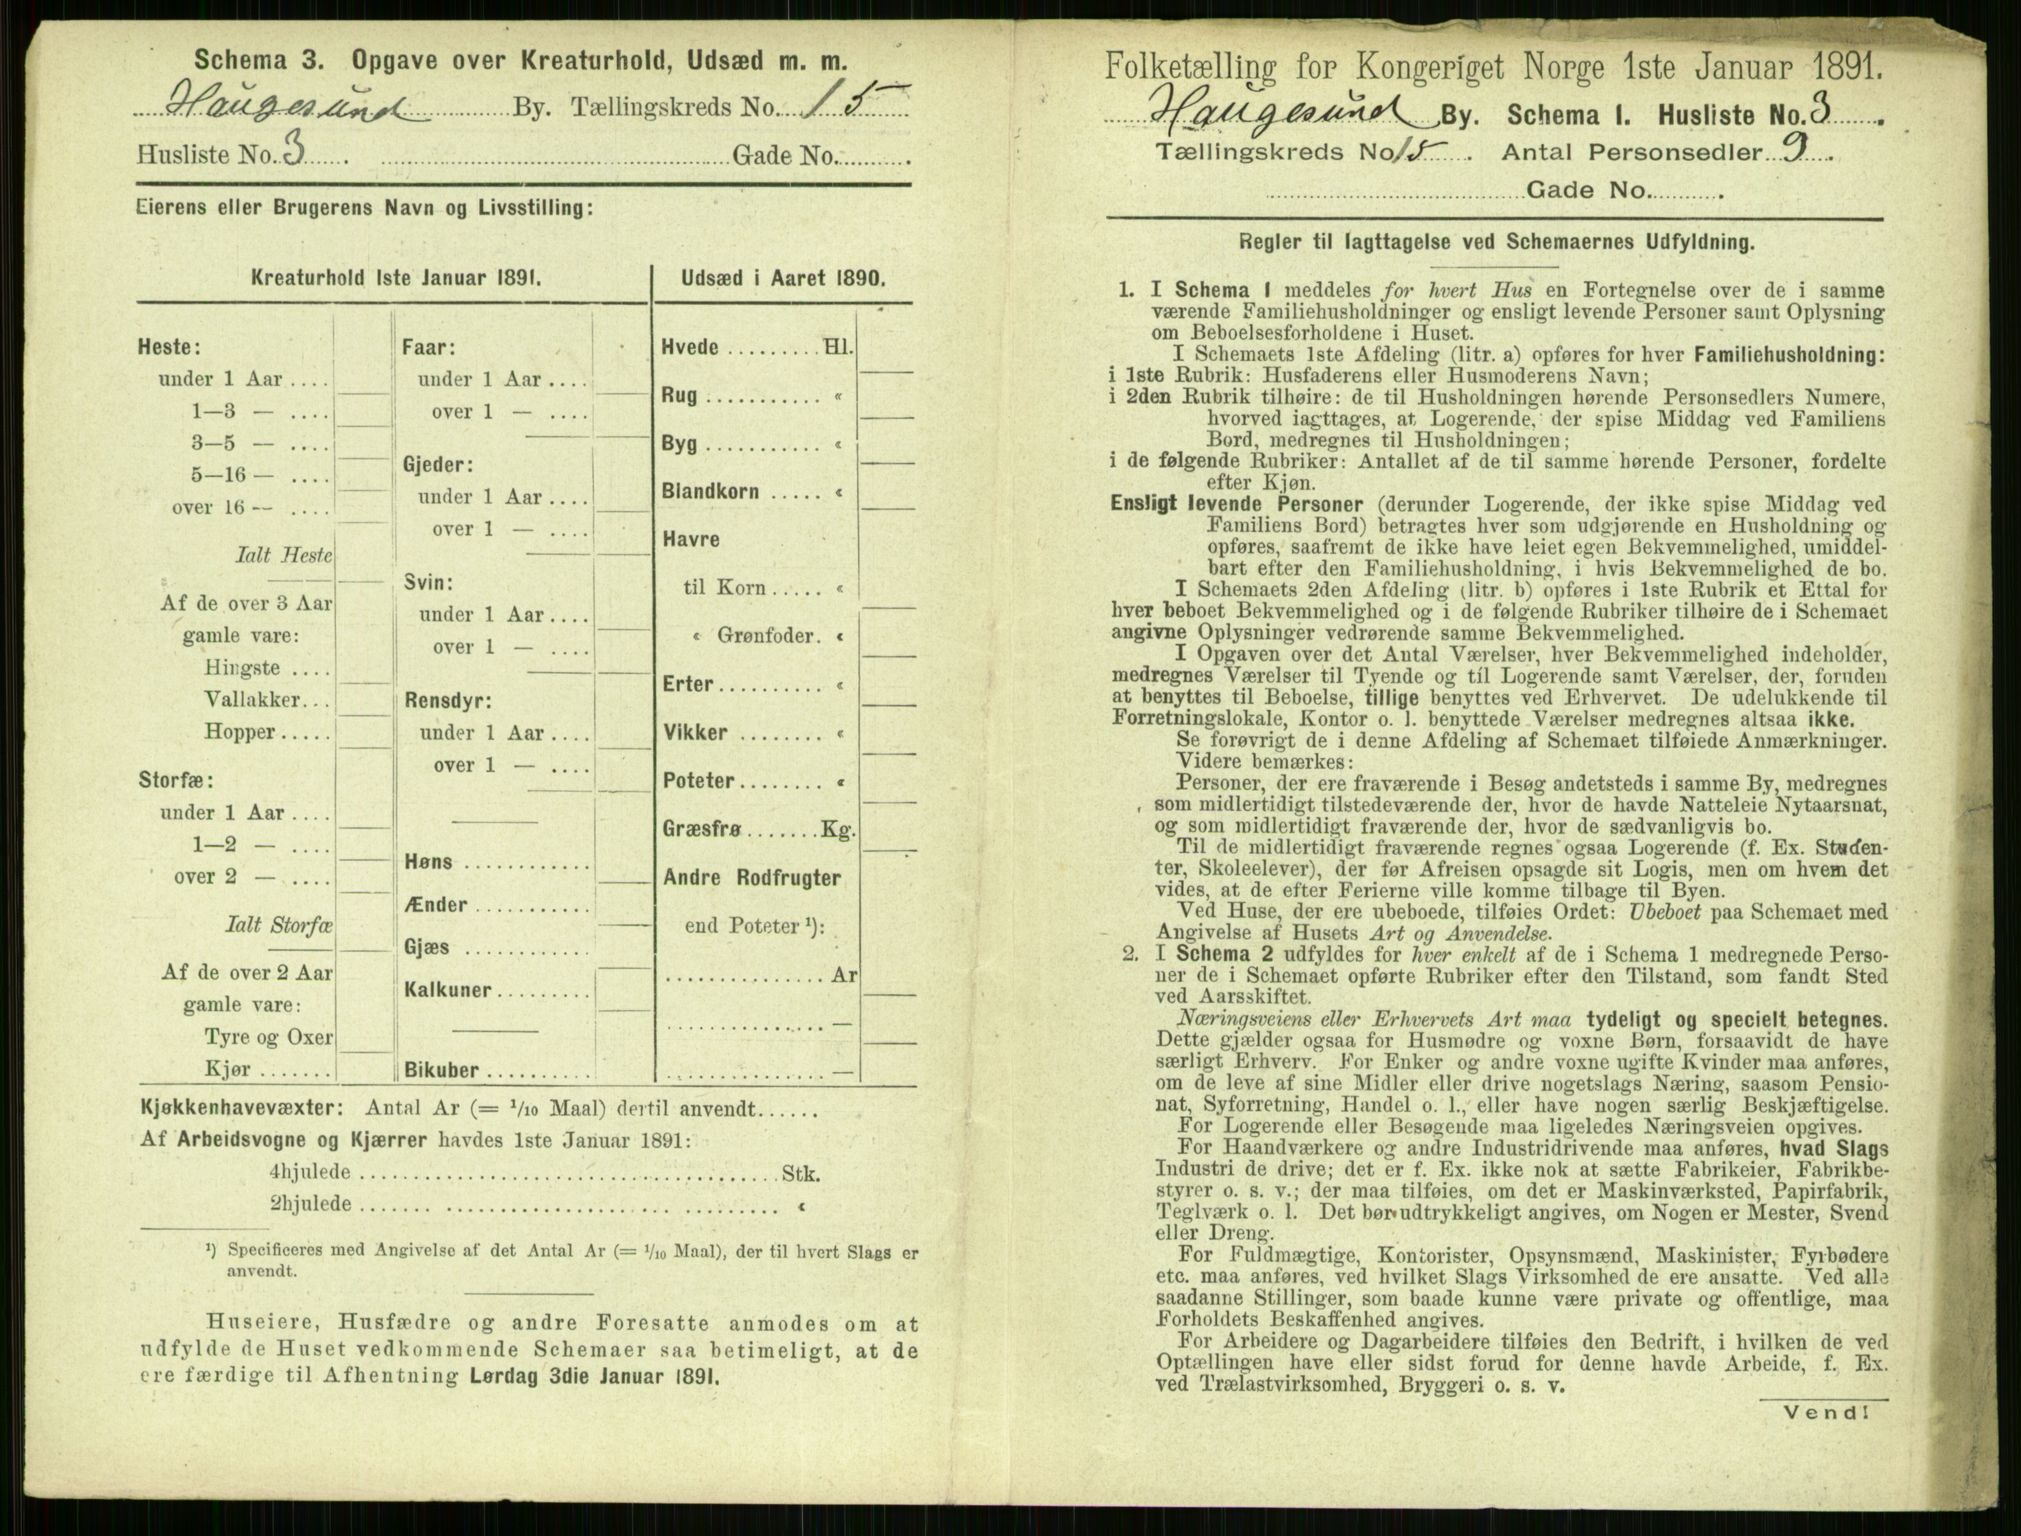 Schema 3. Opgave over Kreaturhold, Udsæd m. m.
Haugesund By. Tællingskreds No. 15
Husliste No. 3 . Gade No. .
Eierens eller Brugerens Navn og Livsstilling:
Kreaturhold 1ste Januar 1891.
Heste:
under 1 Aar ....
1—3 — ....
3—5 — ....
5—16 — ....
over 16 — ....
Ialt Heste
Af de over 3 Aar
gamle vare:
Hingste ....
Vallakker...
Hopper .....
Storfæ:
under 1 Aar ....
1—2 — ....
over 2 — ....
Ialt Storfæ
Af de over 2 Aar
gamle vare:
Tyre og Oxer
Kjør .......
Faar:
under 1 Aar ....
over 1 — ....
Gjeder:
under 1 Aar ....
over 1 — ....
Svin:
under 1 Aar ....
over 1 — ....
Rensdyr:
under 1 Aar ....
over 1 — ....
Høns ............
Ænder ...........
Gjæs ............
Kalkuner .........
Bikuber ..........
Udsæd i Aaret 1890.
Hvede ......... Hl.
Rug ........... «
Byg ........... «
Blandkorn ..... «
Havre
til Korn ..... «
« Grønfoder. «
Erter .......... «
Vikker ........ «
Poteter ........ «
Græsfrø ....... Kg.
Andre Rodfrugter
end Poteter ¹):
............... Ar
............... —
............... —
Kjøkkenhavevæxter: Antal Ar (= 1/10 Maal) dertil anvendt......
Af Arbeidsvogne og Kjærrer havdes 1ste Januar 1891:
4hjulede ........................................ Stk.
2hjulede ........................................ «
¹) Specificeres med Angivelse af det Antal Ar (= 1/10 Maal), der til hvert Slags er
anvendt.
Huseiere, Husfædre og andre Foresatte anmodes om at
udfylde de Huset vedkommende Schemaer saa betimeligt, at de
ere færdige til Afhentning Lørdag 3die Januar 1891.
Folketælling for Kongeriget Norge 1ste Januar 1891.
Haugesund By. Schema 1. Husliste No. 3 .
Tællingskreds No. 15 . Antal Personsedler 9 .
Gade No. .
Regler til Iagttagelse ved Schemaernes Udfyldning.
1. I Schema 1 meddeles for hvert Hus en Fortegnelse over de i samme
værende Familiehusholdninger og ensligt levende Personer samt Oplysning
om Beboelsesforholdene i Huset.
I Schemaets 1ste Afdeling (litr. a) opføres for hver Familiehusholdning:
i 1ste Rubrik: Husfaderens eller Husmoderens Navn;
i 2den Rubrik tilhøire: de til Husholdningen hørende Personsedlers Numere,
hvorved iagttages, at Logerende, der spise Middag ved Familiens
Bord, medregnes til Husholdningen;
i de følgende Rubriker: Antallet af de til samme hørende Personer, fordelte
efter Kjøn.
Ensligt levende Personer (derunder Logerende, der ikke spise Middag ved
Familiens Bord) betragtes hver som udgjørende en Husholdning og
opføres, saafremt de ikke have leiet egen Bekvemmelighed, umiddel-
bart efter den Familiehusholdning, i hvis Bekvemmelighed de bo.
I Schemaets 2den Afdeling (litr. b) opføres i 1ste Rubrik et Ettal for
hver beboet Bekvemmelighed og i de følgende Rubriker tilhøire de i Schemaet
angivne Oplysninger vedrørende samme Bekvemmelighed.
I Opgaven over det Antal Værelser, hver Bekvemmelighed indeholder,
medregnes Værelser til Tyende og til Logerende samt Værelser, der, foruden
at benyttes til Beboelse, tillige benyttes ved Erhvervet. De udelukkende til
Forretningslokale, Kontor o. l. benyttede Værelser medregnes altsaa ikke.
Se forøvrigt de i denne Afdeling af Schemaet tilføiede Anmærkninger.
Videre bemærkes:
Personer, der ere fraværende i Besøg andetsteds i samme By, medregnes
som midlertidigt tilstedeværende der, hvor de havde Natteleie Nytaarsnat,
og som midlertidigt fraværende der, hvor de sædvanligvis bo.
Til de midlertidigt fraværende regnes ogsaa Logerende (f. Ex. Studen-
ter, Skoleelever), der før Afreisen opsagde sit Logis, men om hvem det
vides, at de efter Ferierne ville komme tilbage til Byen.
Ved Huse, der ere ubeboede, tilføies Ordet: Ubeboet paa Schemaet med
Angivelse af Husets Art og Anvendelse.
2. I Schema 2 udfyldes for hver enkelt af de i Schema 1 medregnede Perso-
ner de i Schemaet opførte Rubriker efter den Tilstand, som fandt Sted
ved Aarsskiftet.
Næringsveiens eller Erhvervets Art maa tydeligt og specielt betegnes.
Dette gjælder ogsaa for Husmødre og voxne Børn, forsaavidt de have
særligt Erhverv. For Enker og andre voxne ugifte Kvinder maa anføres,
om de leve af sine Midler eller drive nogetslags Næring, saasom Pensio-
nat, Syforretning, Handel o. l., eller have nogen særlig Beskjæftigelse.
For Logerende eller Besøgende maa ligeledes Næringsveien opgives.
For Haandværkere og andre Industridrivende maa anføres, hvad Slags
Industri de drive; det er f. Ex. ikke nok at sætte Fabrikeier, Fabrikbe-
styrer o. s. v.; der maa tilføies, om det er Maskinværksted, Papirfabrik,
Teglværk o. l. Det bør udtrykkeligt angives, om Nogen er Mester, Svend
eller Dreng.
For Fuldmægtige, Kontorister, Opsynsmænd, Maskinister, Fyrbødere
etc. maa anføres, ved hvilket Slags Virksomhed de ere ansatte. Ved alle
saadanne Stillinger, som baade kunne være private og offentlige, maa
Forholdets Beskaffenhed angives.
For Arbeidere og Dagarbeidere tilføies den Bedrift, i hvilken de ved
Optællingen have eller sidst forud for denne havde Arbeide, f. Ex.
ved Trælastvirksomhed, Bryggeri o. s. v.
Vend!